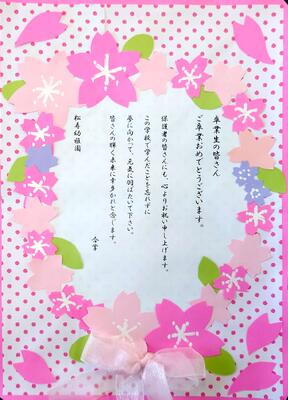 卒業生の皆さん
ご卒業おめでとうございます。
保護者の皆さんにも、心よりお祝い申し上げます。
この学校で学んだことを忘れずに
夢に向かって、元気に羽ばたいて下さい。
皆さんの輝く未来に幸多かれと念じます。
合掌
松寿幼稚園